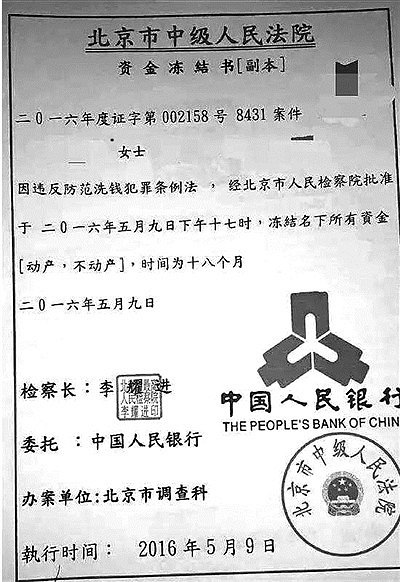 北京市中级人民法院
资金冻结书[副本]
二0一六年度证字第002158号 8431案件
女士
因违反防范洗钱犯罪条例法 ，经北京市人民检察院批准
于 二0一六年五月九日下午十七时，冻结名下所有资金
[动产，不动产]，时间为十八个月
二0一六年五月九日
检察长：李耀进
委托 ：中国人民银行
办案单位:北京市调查科
執行时间： 2016年5月9日
中国人民银行
THE PEOPLE'S BANK OF CHIN
北京市中级人民法院